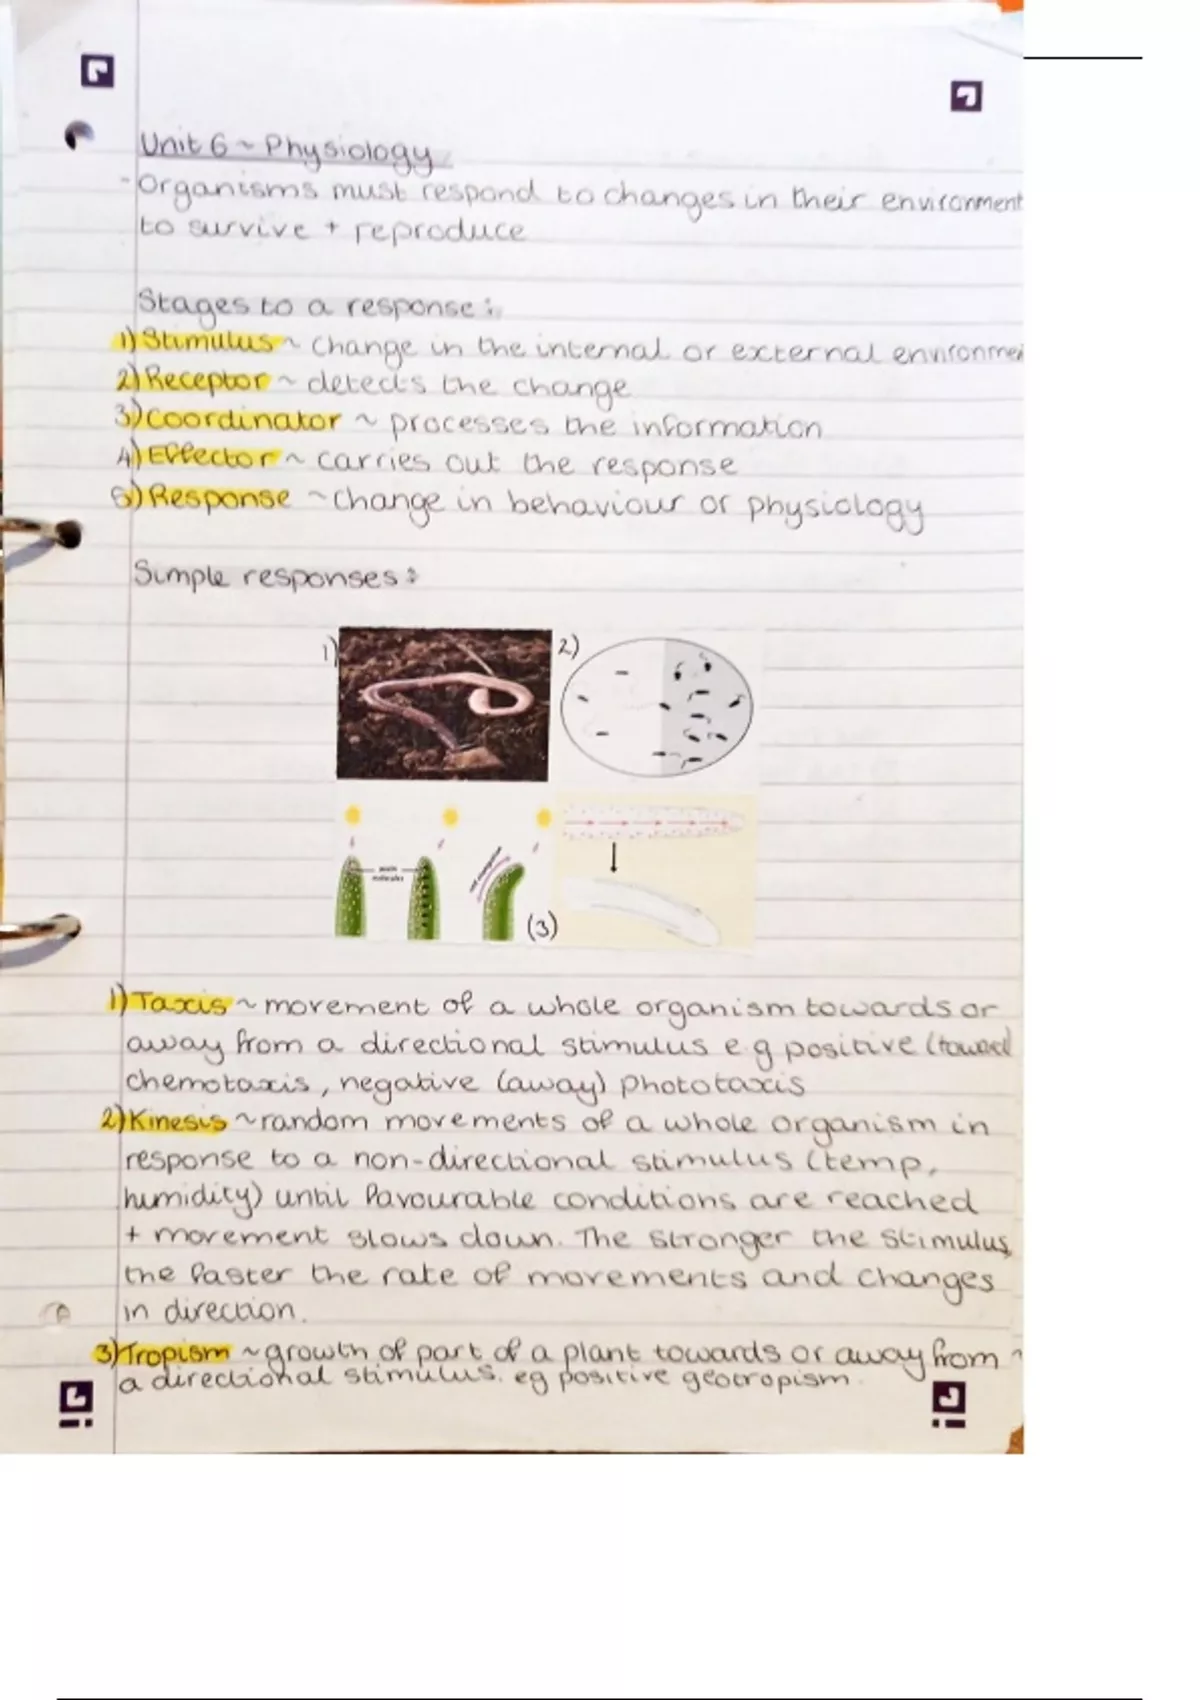 Unit 6 ~ Physiology
- Organisms must respond to changes in their environment
to survive + reproduce
Stages to a response:
1) Stimulus ~ change in the internal or external environmen
2) Receptor ~ detects the change
3) Coordinator ~ processes the information
4) Effector ~ carries out the response
5) Response ~ change in behaviour or physiology
Simple responses:
1)
2)
auxin
molecules
cell elongation
(3)
1) Taxis ~ movement of a whole organism towards or
away from a directional stimulus e.g positive (toward
chemotaxis, negative (away) phototaxis
2) Kinesis ~ random movements of a whole organism in
response to a non-directional stimulus (temp,
humidity) until favourable conditions are reached
+ movement slows down. The stronger the stimulus,
the faster the rate of movements and changes
in direction.
3) Tropism ~ growth of part of a plant towards or away from
a directional stimulus. eg positive geotropism.